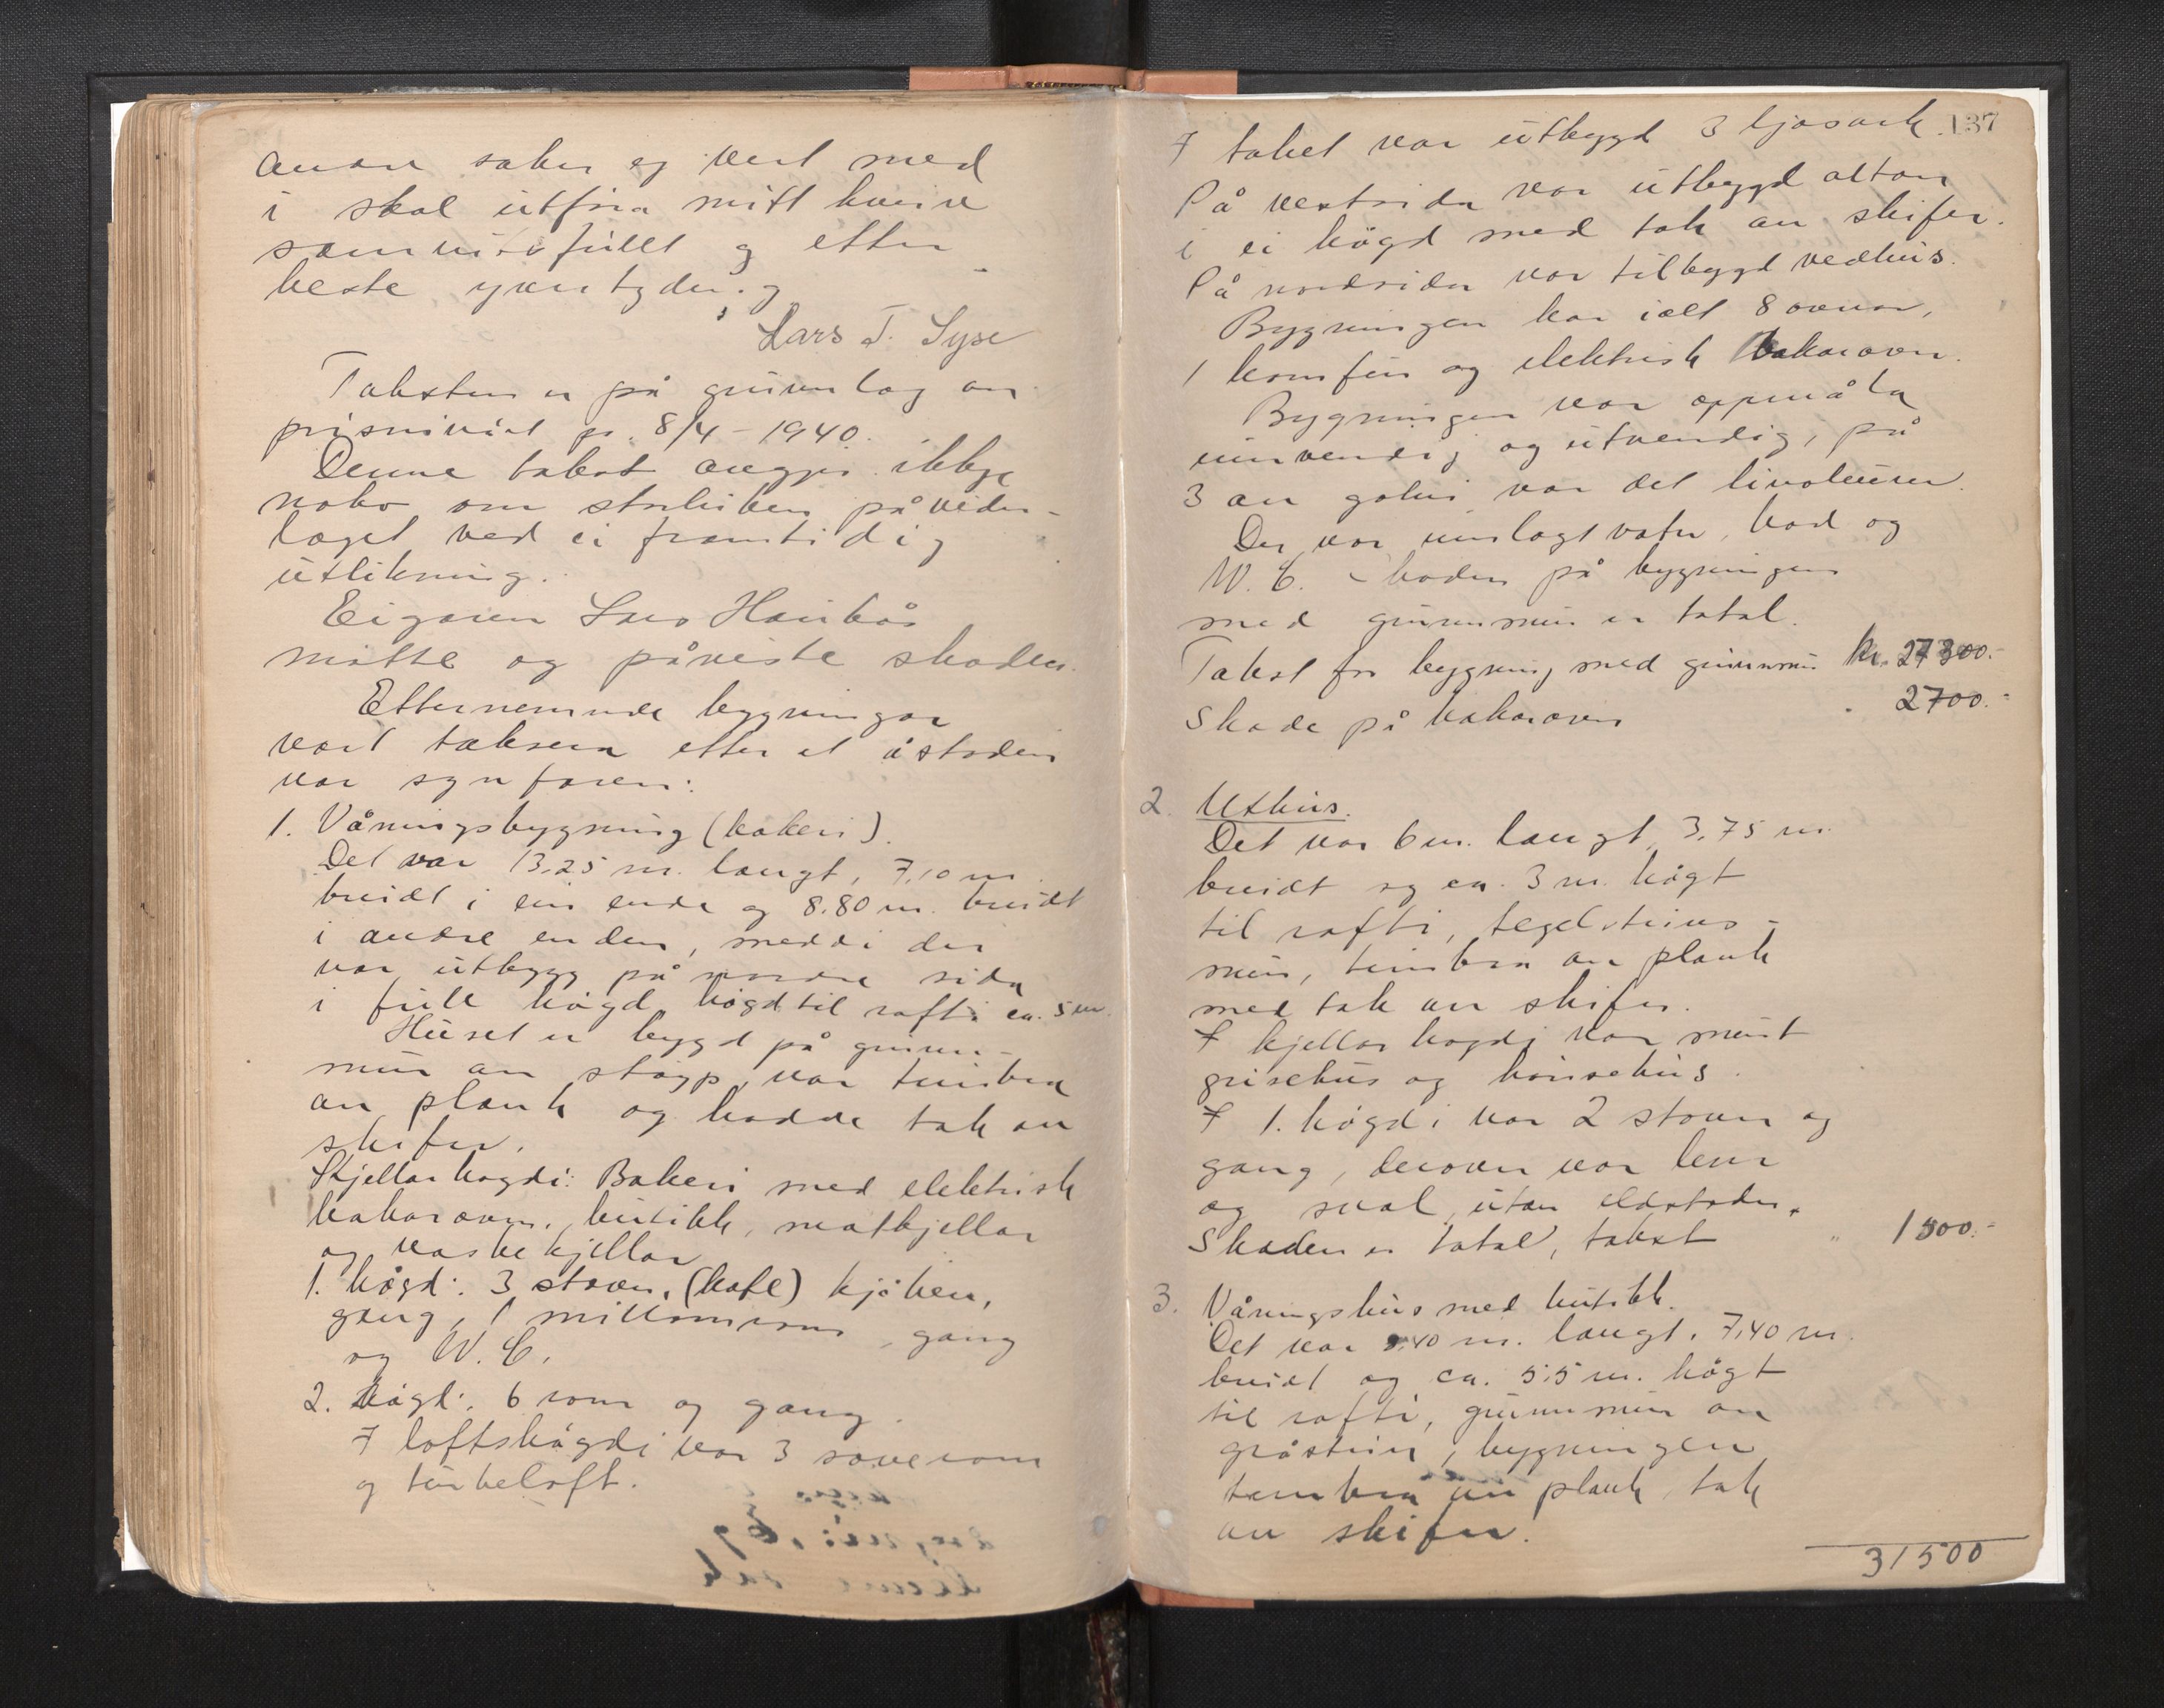 annan saker eg vert med
i skal utföra mitt kverv
samvitsfullt og etter
beste yvertyding
Lars T. Syse
Taksten er på grunnlag av
prisnivået pr. 8/4 - 1940.
Denne takst angjer ikkje
noko om storleiken på veder-
laget ved ei framtidig
utlikning.
Eigaren Lars Haukås
møtte og påviste skaden.
Etternemnde bygningar
vart taksera etter at åstaden
var synfaren:
1. Våningsbygning (bakeri).
Det var 13,25 m. langt, 7,10 m
breidt i ein ende og 8.80 m. breidt
i andre enden, med di der
var utbygg på nordre sida
i full högd, högd til rafti ca. 5 m.
Huset er bygd på grunn-
mur av støyp, var timbra
av plank og hadde tak av
skifer.
Kjellarhögdi: Bakeri med elektrisk
bakarovn, butikk, matkjellar
og vaskekjellar
1. högd: 3 stover, (kafe) kjöken,
gang, 1 millomrom, gang
og W.C.
2. högd: 6 rom og gang.
I loftshögdi var 3 soverom
og turkeloft.
137
I taket var utbygd 3 ljosark.
På vestsida var utbygd altan
i ei högd med tak av skifer.
På nordsida var tilbygd vedhus.
Bygningen har ialt 8 ovnar,
1 komfyr og elektrisk bakarovn.
Bygningen var oppmåla
innvendig og utvendig, på
3 av golvi var det linoleum.
Der var innlagt vatn, bad og
W.C. Skaden på bygningen
med grunnmur er total.
Takst for bygning med grunnmur kr. 27300.-
Skade på bakarovn " 2700.-
2. Uthus.
Det var 6 m. langt, 3,75 m.
breidt og ca. 3 m. högt
til rafti, tegelsteins-
mur, timbra av plank
med tak av skifer.
I kjellarhögdi var murt
grisehus og hönsehus.
I 1. högdi var 2 stover og
gang, derover var lem
og sval, utan eldstader.
Skaden er total, takst " 1500.-
3. Våningshus med butikk.
Det var 9.40 m. langt, 7,40 m.
breidt og ca. 5.5 m. högt
til rafti, grunnmur av
gråstein, bygningen
timbra av plank, tak
av skifer.
31500